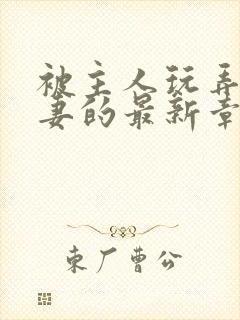 被主人玩弄
妻的最新章
东厂曹公